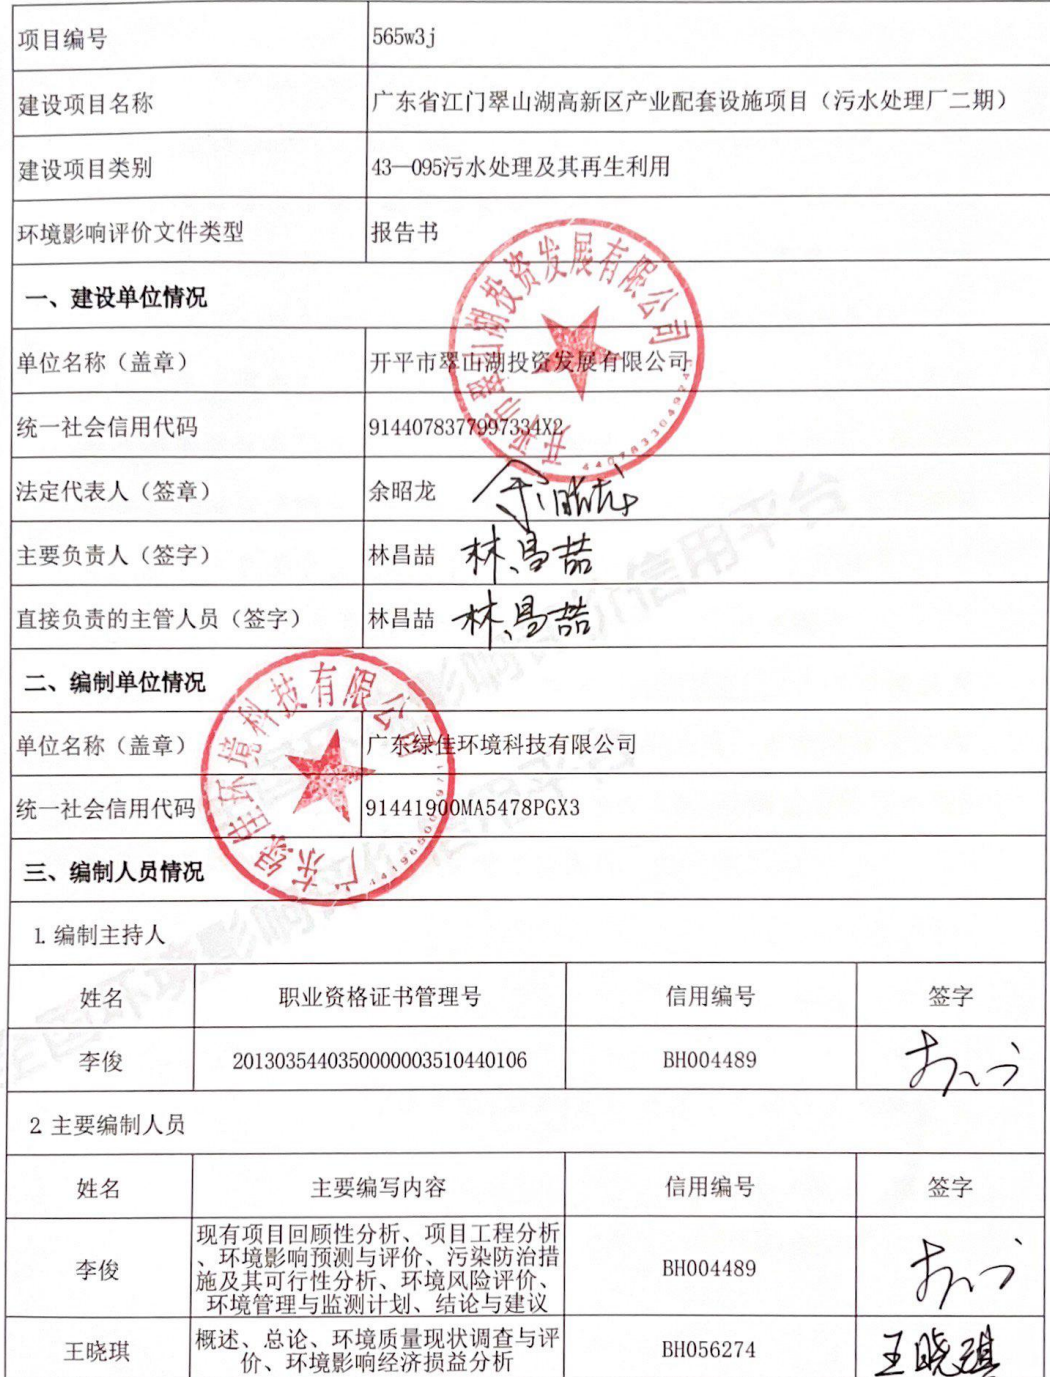 项目编号 565w3j
建设项目名称 广东省江门翠山湖高新区产业配套设施项目（污水处理厂二期）
建设项目类别 43—095污水处理及其再生利用
环境影响评价文件类型 报告书
一、建设单位情况
单位名称（盖章） 开平市翠山湖投资发展有限公司
开平市翠山湖投资发展有限公司
统一社会信用代码 9144078377997334X2
法定代表人（签章） 余昭龙 余昭龙
主要负责人（签字） 林昌喆 林昌喆
直接负责的主管人员（签字） 林昌喆 林昌喆
二、编制单位情况
单位名称（盖章） 广东绿佳环境科技有限公司
广东绿佳环境科技有限公司
统一社会信用代码 91441900MA5478PGX3
三、编制人员情况
1. 编制主持人
姓名 职业资格证书管理号 信用编号 签字
李俊 2013035440350000003510440106 BH004489
2. 主要编制人员
姓名 主要编写内容 信用编号 签字
现有项目回顾性分析、项目工程分析
、环境影响预测与评价、污染防治措
李俊 施及其可行性分析、环境风险评价、 BH004489
环境管理与监测计划、结论与建议
概述、总论、环境质量现状调查与评
王晓琪 价、环境影响经济损益分析 BH056274 王晓琪